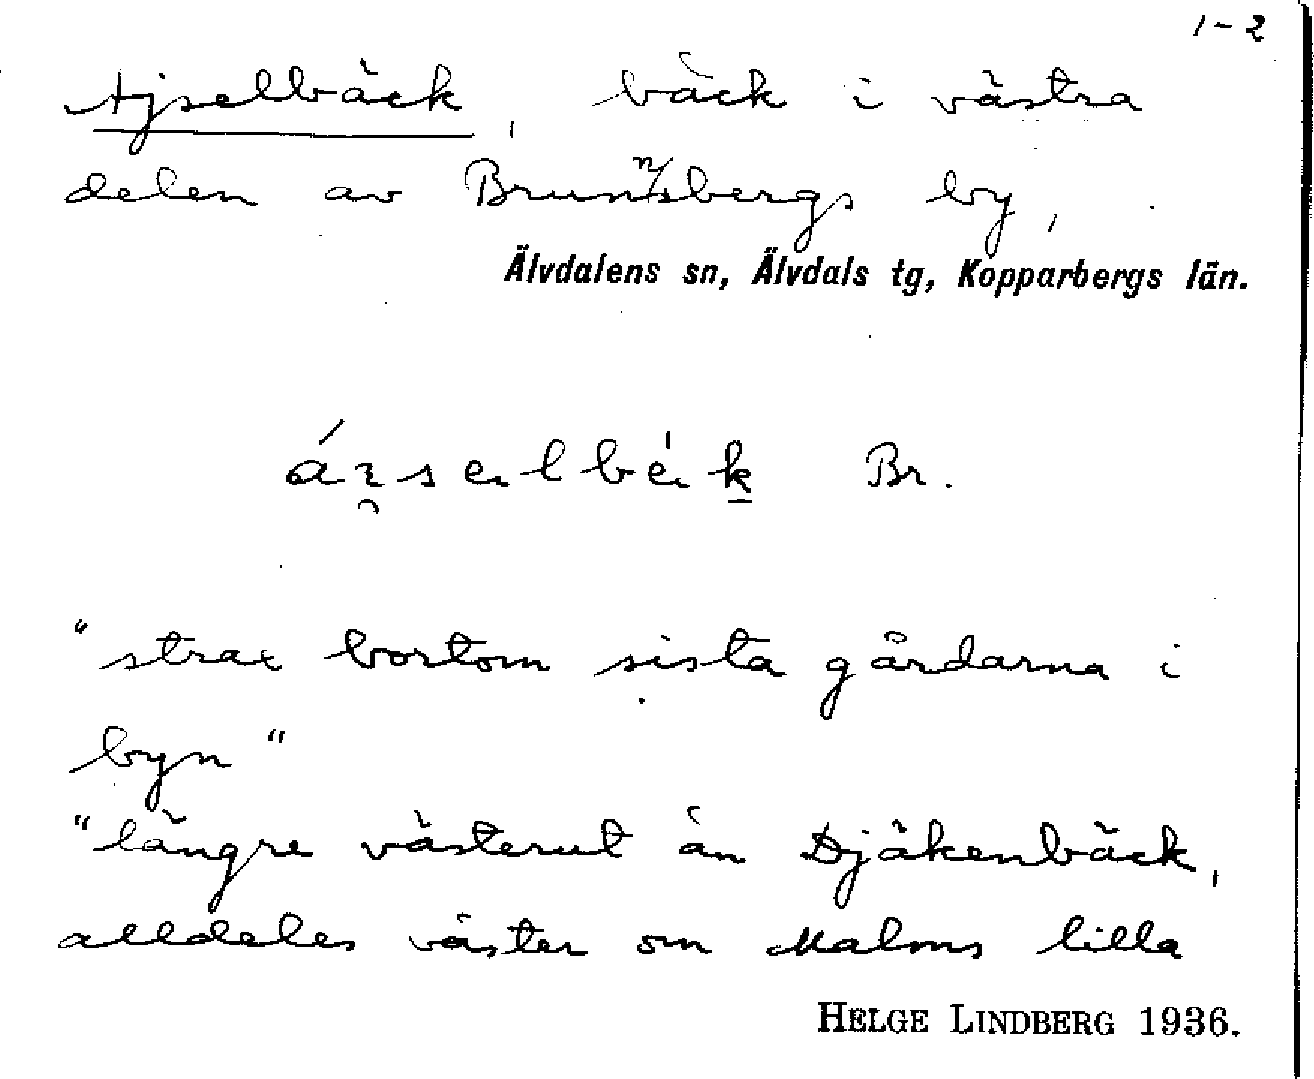 1-2
Ajselbäck, bäck i västra
delen av Brunnsbergs by,
Älvdalens sn, Älvdals tg, Kopparbergs län.
Br.
"strax bortom sista gårdarna i
byn"
"längre västerut än Djäkenbäck,
alldeles väster om Malms lilla
HELGE LINDBERG 1936.